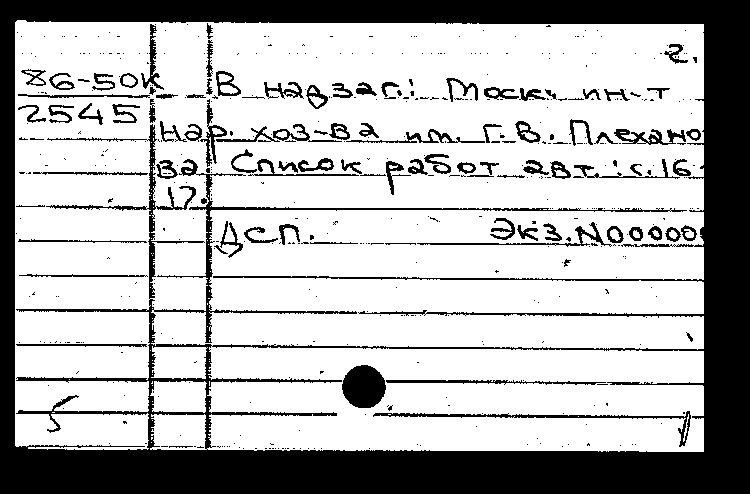 2.
86-50к В надзаг.: Моск. ин-т
2545
нар. хоз-ва им. Г.В. Плехано
ва Список работ авт.: с. 16-
17.
ДСП. Экз.N00000
5